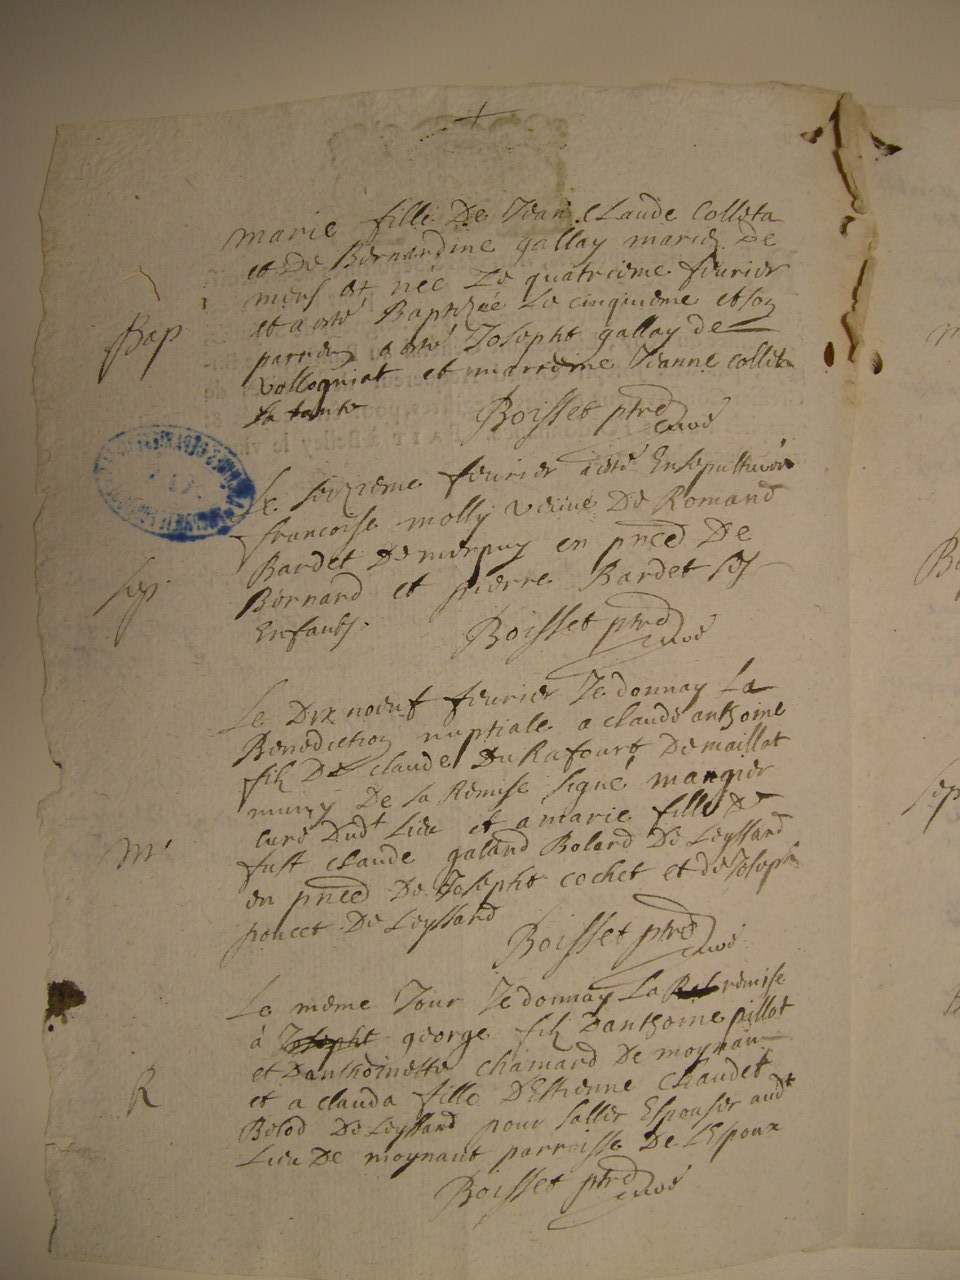 marie fille De Jean Claude Colleta
et De Bernardine gallay mariez De
et née Le quatrieme feurier
Bap
et a esté Baptizée Le cinquieme et son
parrein a esté Josepht gallay de
Vollogniat et marreine Jeanne Colleta
sa tante
Boisset ptre
curé
Le seizieme feurier a esté Ensepulturée
francoise molly veuue De Romand
Bardet De merpuy en pnce De
Sep
Bernard et pierre Bardet ses
Enfants.
Boisset ptre
curé
Le Dix noeuf feurier Je donnay La
Benediction nuptiale a claude anthoine
filz De claude Du Rafourt De maillat
muny De La Remise signé mangier
curé Dudt Lieu et a marie fille De
M
fust Claude galand Bolard De Leyssard
en pnce De Josepht cochet et de Joseph
poncet De Leyssard
Boisset ptre
curé
Le meme Jour Je donnay La remise
à george filz Danthoine pillot
et Danthoinette chamard De moynau
R
et a clauda fille DEstienne Chaudet
Belod De Leyssard pour saller Espouser audt
Lieu De moynaut parroisse De LEspoux
Boisset ptre
curé